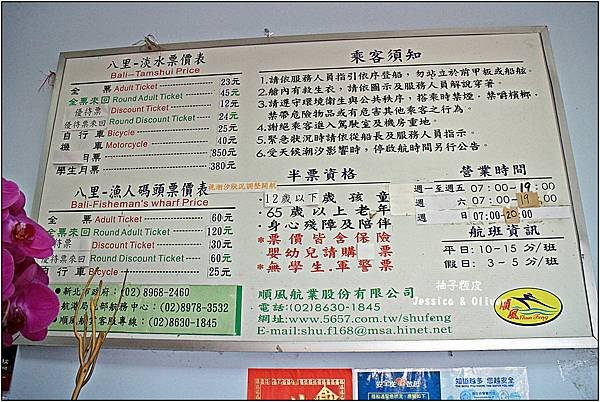 八里-淡水票價表
Bali-Tamshui Price
全 票 Adult Ticket 23元
全票來回 Round Adult Ticket 45元
優待票 Discount Ticket 12元
優待票來回 Round Discount Ticket 24元
自行車 Bicycle 25元
機 車 Motorcycle 40元
月票 850元
學生月票 380元
八里-漁人碼頭票價表
視潮汐狀況調整開航
Bali-Fisheman's wharf Price
Adult Ticket 60元
全票來回 Round Adult Ticket 120元
待票 Discount Ticket 30元
Round Discount Ticket 60元
自行車 Bicycle 25元
新北市政府:(02) 8968-2460
(02)8978-3532
(02)8630-1845
乘客須知
1.請依服務人員指引依序登船,勿站立於前甲板或船舷。
2.艙內有救生衣,請依圖示及服務人員解說穿著。
3.請遵守環境衛生與公共秩序,搭乘時禁煙、禁嚼檳榔、
禁帶危險物品或有危害其他乘客之行為。
4.謝絕乘客進入駕駛室及機房重地。
5.緊急狀況時請依從船長及服務人員指示。
6.受天候潮汐影響時,停啟航時間另行公告。
半票資格
·12歲以下孩童
·65歲以上老年
·身心殘障及陪伴
*票價皆含保險
嬰幼兒請購票
*無學生.軍警票
營業時間
週一至週五 07:00-19:00
週 六 07:00-19:00
週 日 07:00-20:00
航班資訊
平日:10-15分/班
假日:3-5分/班
順風航業股份有限公司
電話:(02)8630-1845
網址:www.5657.com.tw/shufeng
E-mail:shu.f168@msa.hinet.net
順風 Shun Feng
Jessica & Oliver
知道越多 越安全